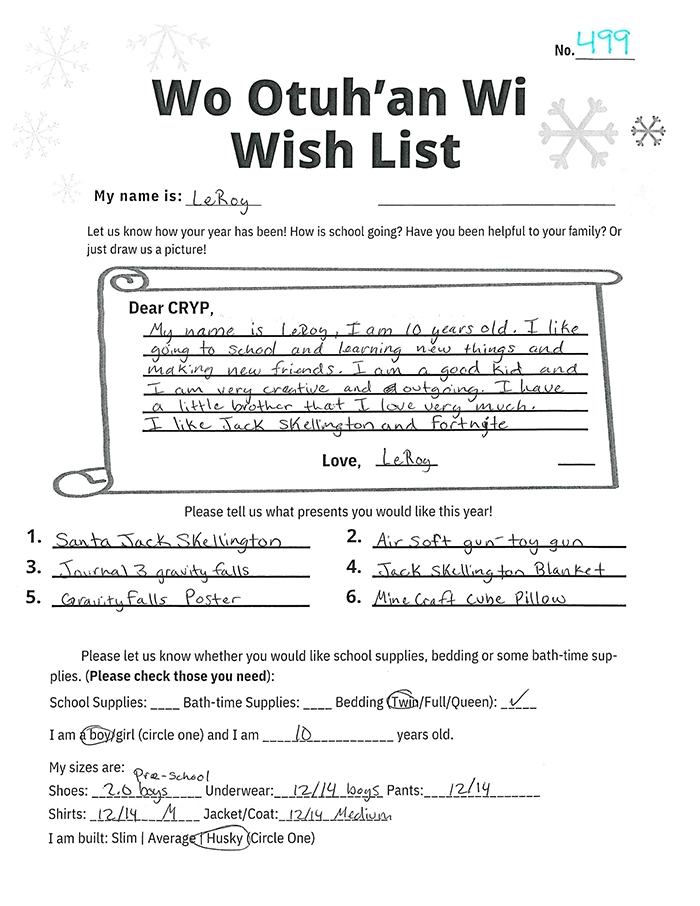 No. 499
Wo Otuh'an Wi
Wish List
My name is: LeRoy
Let us know how your year has been! How is school going? Have you been helpful to your family? Or
just draw us a picture!
Dear CRYP,
My name is LeRoy, I am 10 years old. I like
going to school and learning new things and
making new friends. I am a good kid and
I am very creative and outgoing. I have
a little brother that I love very much.
I like Jack Skellington and Fortnite
Love, LeRoy
Please tell us what presents you would like this year!
1. Santa Jack Skellington 2. Air soft gun-toy gun
3. Journal 3 gravity falls 4. Jack Skellington Blanket
5. Gravity Falls Poster 6. MineCraft cube Pillow
Please let us know whether you would like school supplies, bedding or some bath-time sup-
plies. (Please check those you need):
School Supplies: ____ Bath-time Supplies: ____ Bedding (Twin/Full/Queen): ✓
I am a boy/girl (circle one) and I am 10 years old.
My sizes are: Pre-School
Shoes: 2.0 boys Underwear: 12/14 boys Pants: 12/14
Shirts: 12/14 M Jacket/Coat: 12/14 Medium
I am built: Slim | Average | Husky (Circle One)